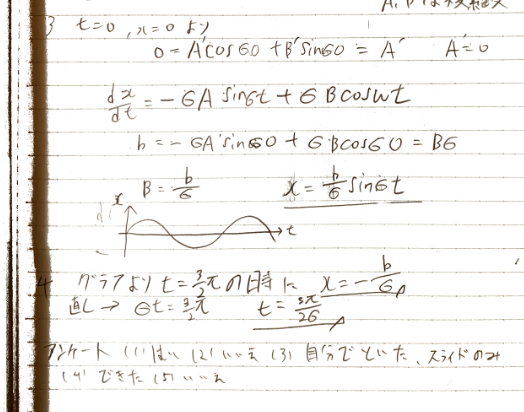 3 t=0, x=0 より
0 = A'cos60 + B'sin60 = A' A'=0
dx/dt = -6A sin6t + 6Bcosωt
b = -6A'sin60 + 6Bcos60 = B6
B = b/6 x = b/6 sin6t
x
t
4 グラフより t=3/2π の時に x=-b/6
直し→ 6t=3/2π t=3π/26
アンケート (1)はい (2)いいえ (3)自分でといた、スライドのみ
(4)できた (5)いいえ